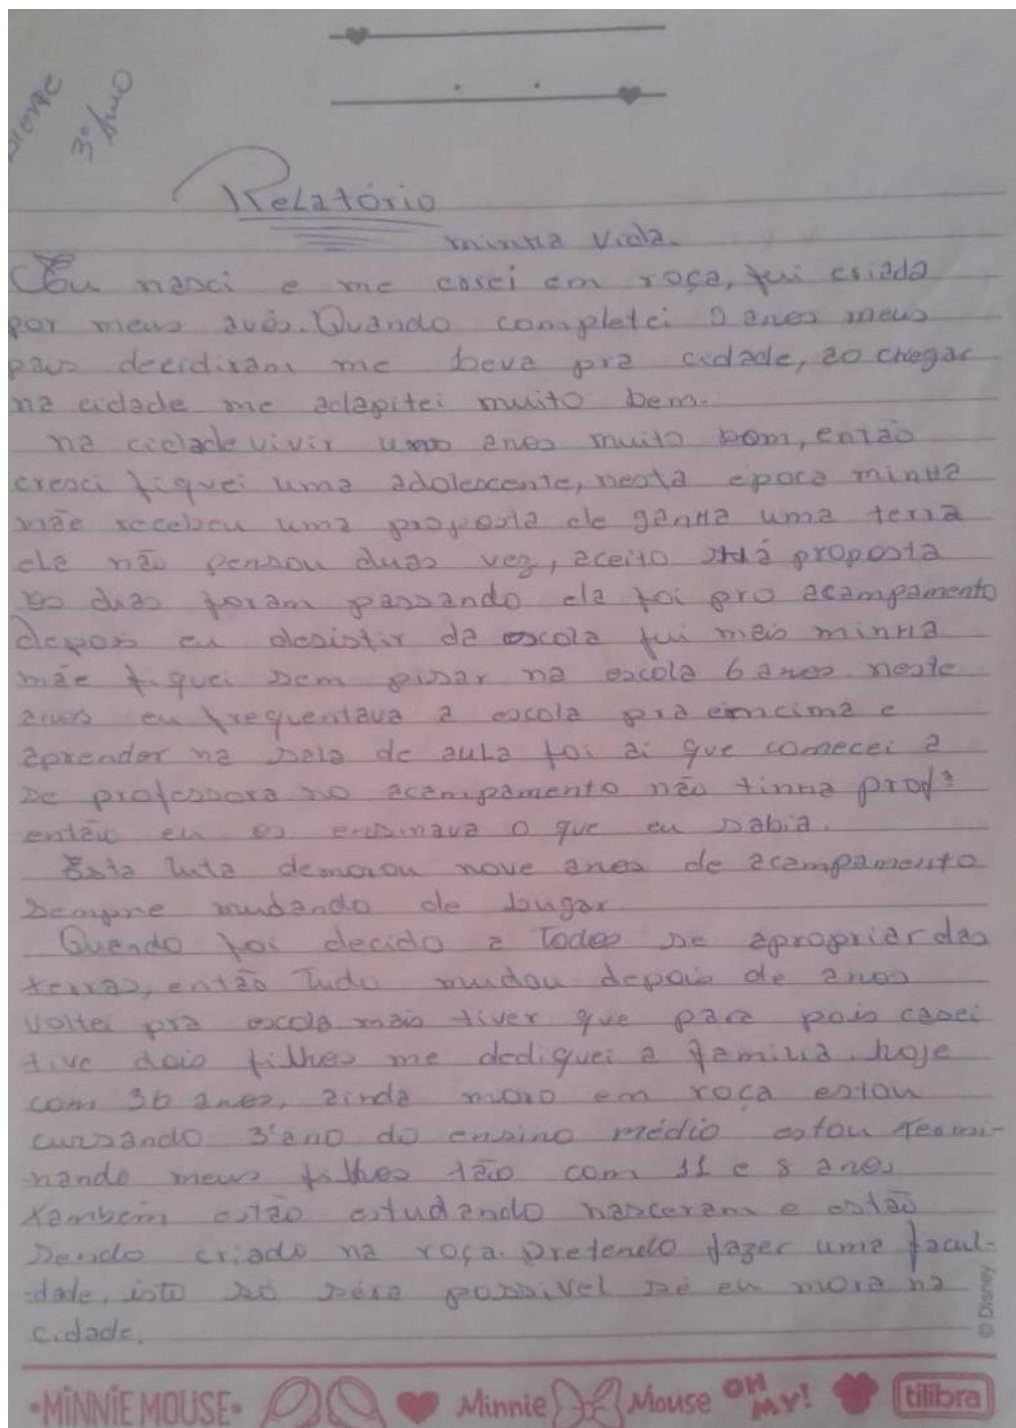 3º Ano
Relatório
minha vida.
Eu nasci e me casei em roça, fui criada
por meus avós. Quando completei 9 anos meus
pais decidiram me leva pra cidade, ao chegar
na cidade me adapitei muito bem.
na cidade vivir uns anos muito bom, então
cresci fiquei uma adolescente, nesta época minha
mãe recebeu uma proposta de ganha uma terra
ela não pensou duas vez, aceito há proposta
os dias foram passando ela foi pro acampamento
depois eu desistir da escola fui mais minha
mãe fiquei sem pisar na escola 6 anos. neste
anos eu frequentava a escola pra eincima e
aprender na sala de aula foi ai que comecei a
se professora no acampamento não tinha profª
então eu os ensinava o que eu sabia.
Esta luta demorou nove anos de acampamento
sempre mudando de lugar.
Quando foi decido a todos se apropriar das
terras, então tudo mudou depois de anos
voltei pra escola mais tiver que para pois casei
tive dois filhos me dediquei a familia. hoje
com 36 anos, ainda moro em roça estou
cursando 3º ano do ensino médio estou termi-
nando meus filhos tão com 11 e 8 anos
também estão estudando nasceram e estão
sendo criado na roça. pretendo fazer uma facul-
dade, isto só séra possivel sé eu mora na
cidade.
© Disney
•MINNIE MOUSE• Minnie Mouse OH MY! tilibra